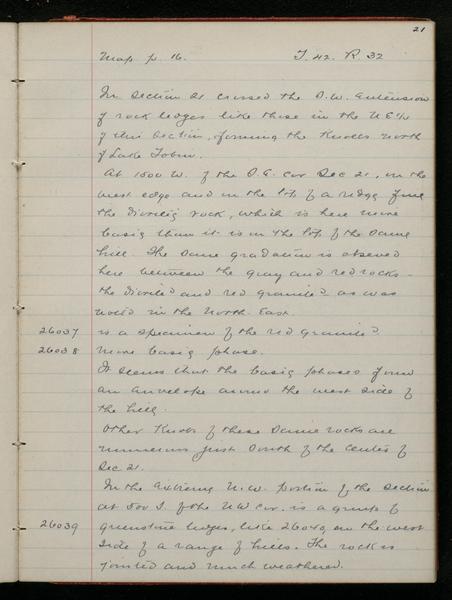 21
Map p. 16. T. 42. R 32
In Section 21 crossed the S.W. extension
of rock ledges like those in the N.E ¼
of this Section, forming the Knobs north
of Lake Tobin.
At 1500 W. of the S.E. cor Sec 21, on the
west edge and on the top of a ridge find
the dioritic rock, which is here more
basic than it is on the top of the same
hill. The same gradation is observed
here between the gray and red rocks -
the diorite and red granite as was
noted in the North East.
26037 is a specimen of the red granite
26038 more basic phase.
It seems that the basic phases form
an envelope around the west side of
the hill.
Other Knobs of these same rocks are
numerous just South of the center of
Sec 21.
In the extreme N.W. portion of the section
at 500 S. of the NW cor. is a group of
26039 greenstone ledges, like 26040, on the west
side of a range of hills. The rock is
jointed and much weathered.